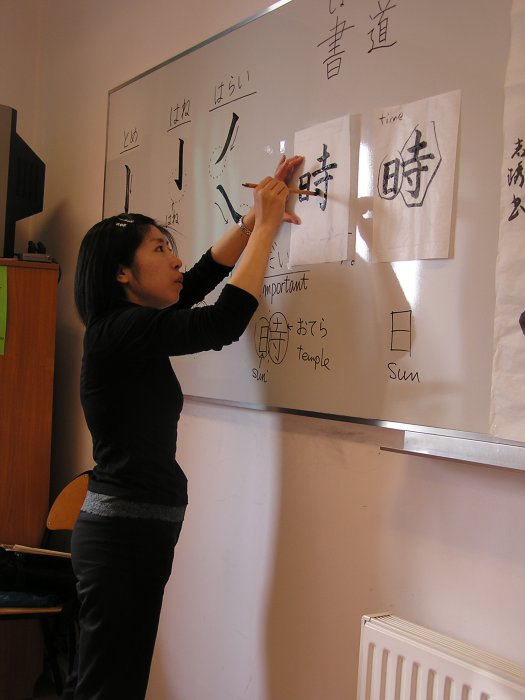 書道
とめ
はね
はらい
はね
時
time
時
important
時
おてら
temple
sun
日
Sun